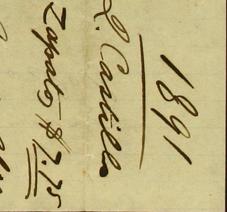 1891
L. Castillo
Zapato $7.75